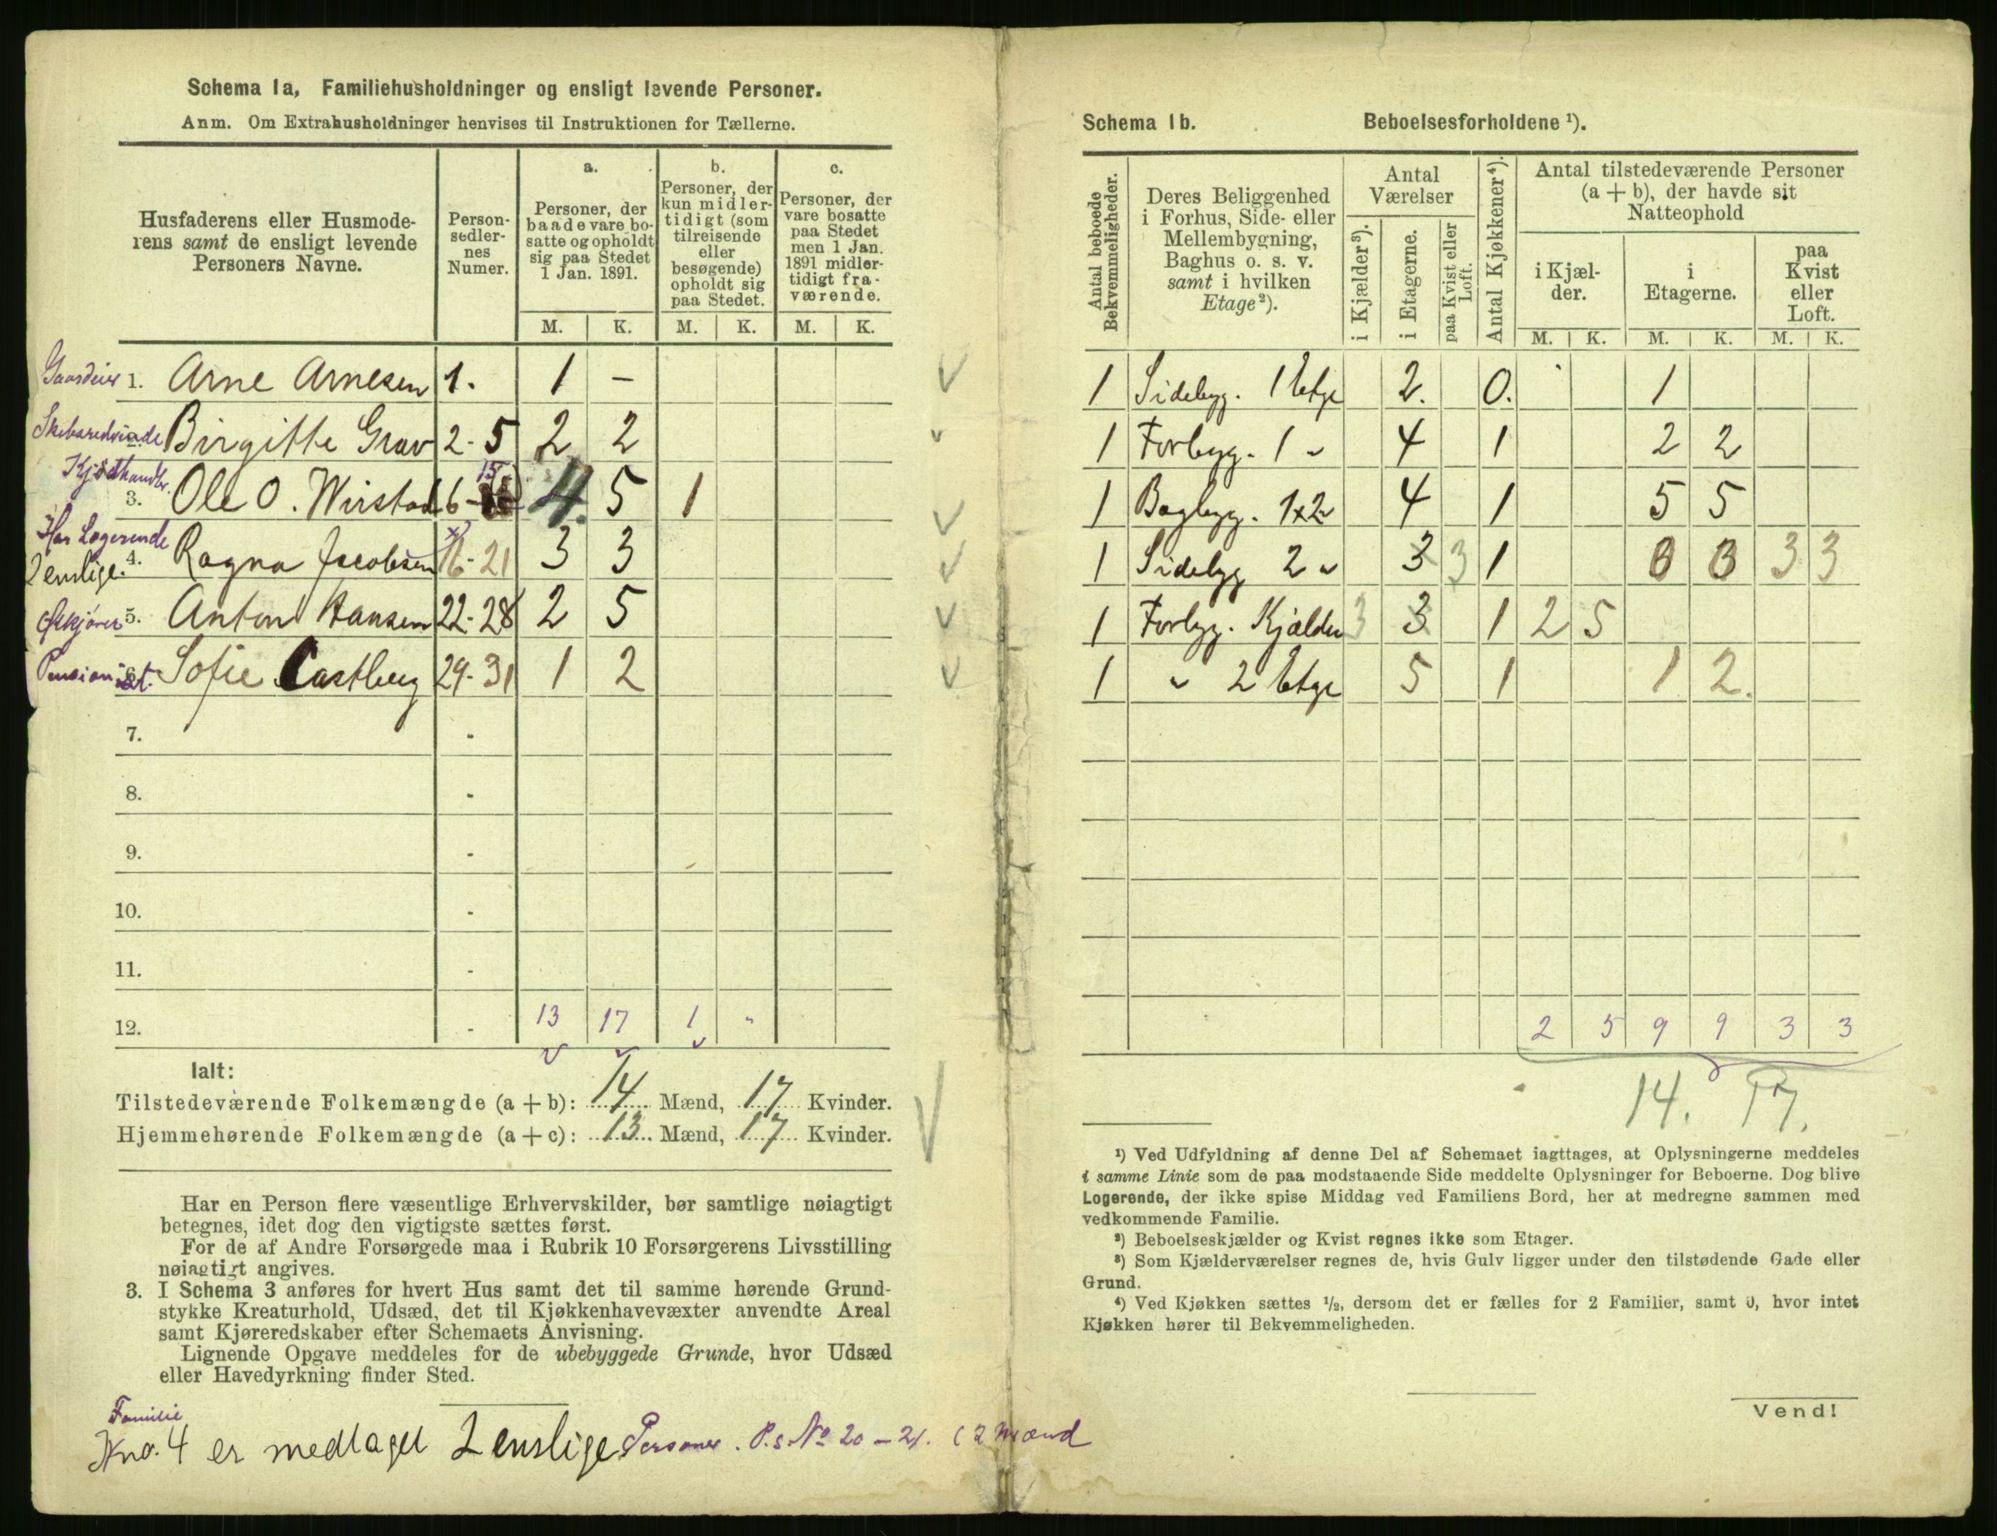 Schema 1a, Familiehusholdninger og ensligt levende Personer.
Anm. Om Extrahusholdninger henvises til Instruktionen for Tællerne.
Husfaderens eller Husmode-
rens samt de ensligt levende
Personers Navne.
Person-
sedler-
nes
Numer.
a.
Personer, der
baade vare bo-
satte og opholdt
sig paa Stedet
1 Jan. 1891.
b.
Personer, der
kun midler-
tidigt (som
tilreisende
eller
besøgende)
opholdt sig
paa Stedet.
c.
Personer, der
vare bosatte
paa Stedet
men 1 Jan.
1891 midler-
tidigt fra-
værende.
M. K. M. K. M. K.
Gaardeier 1. Arne Arnesen 1. 1 –
2. Birgitte Grav 2-5 2 2
Kjødhandler 3. Ole O. Wirstad 6-15 4. 5 1
Har Logerende
2 enslige. 4. Ragna Jacobsen 16-21 3 3
5. Anton Hansen 22-28 2 5
Pensionist. 6. Sofie Castberg 29-31 1 2
7. -
8. -
9. -
10. -
11. -
12. - 13 17 1 "
Ialt:
Tilstedeværende Folkemængde (a + b): 14 Mænd, 17 Kvinder.
Hjemmehørende Folkemængde (a + c): 13 Mænd, 17 Kvinder.
Har en Person flere væsentlige Erhvervskilder, bør samtlige nøiagtigt
betegnes, idet dog den vigtigste sættes først.
For de af Andre Forsørgede maa i Rubrik 10 Forsørgerens Livsstilling
nøiagtigt angives.
3. I Schema 3 anføres for hvert Hus samt det til samme hørende Grund-
stykke Kreaturhold, Udsæd, det til Kjøkkenhavevæxter anvendte Areal
samt Kjøreredskaber efter Schemaets Anvisning.
Lignende Opgave meddeles for de ubebyggede Grunde, hvor Udsæd
eller Havedyrkning finder Sted.
Familie
No. 4 er medtaget 2 enslige Personer. P.s. No 20-21. (2 Mænd
Schema 1b. Beboelsesforholdene ¹).
Antal beboede
Bekvemmeligheder.
Deres Beliggenhed
i Forhus, Side- eller
Mellembygning,
Baghus o. s. v.
samt i hvilken
Etage²).
Antal
Værelser
i Kjælder³).
i Etagerne.
paa Kvist eller
Loft.
Antal Kjøkkener⁴).
Antal tilstedeværende Personer
(a + b), der havde sit
Natteophold
i Kjæl-
der.
i
Etagerne.
paa
Kvist
eller
Loft.
M. K. M. K. M. K.
1 Sidebyg. 1 Etge 2. 0. 1
1 Forbyg. 1 " 4 1 2 2
1 Bagbyg. 1x2 " 4 1 5 5
1 Sidebyg 2 " 3 3 1 0 0 3 3
1 Forbyg. Kjælder 3 3 1 2 5
1 " 2 Etge 5 1 1 2.
2 5 9 9 3 3
14. 17.
¹) Ved Udfyldning af denne Del af Schemaet iagttages, at Oplysningerne meddeles
i samme Linie som de paa modstaaende Side meddelte Oplysninger for Beboerne. Dog blive
Logerende, der ikke spise Middag ved Familiens Bord, her at medregne sammen med
vedkommende Familie.
²) Beboelseskjælder og Kvist regnes ikke som Etager.
³) Som Kjælderværelser regnes de, hvis Gulv ligger under den tilstødende Gade eller
Grund.
⁴) Ved Kjøkken sættes ½, dersom det er fælles for 2 Familier, samt 0, hvor intet
Kjøkken hører til Bekvemmeligheden.
Vend!